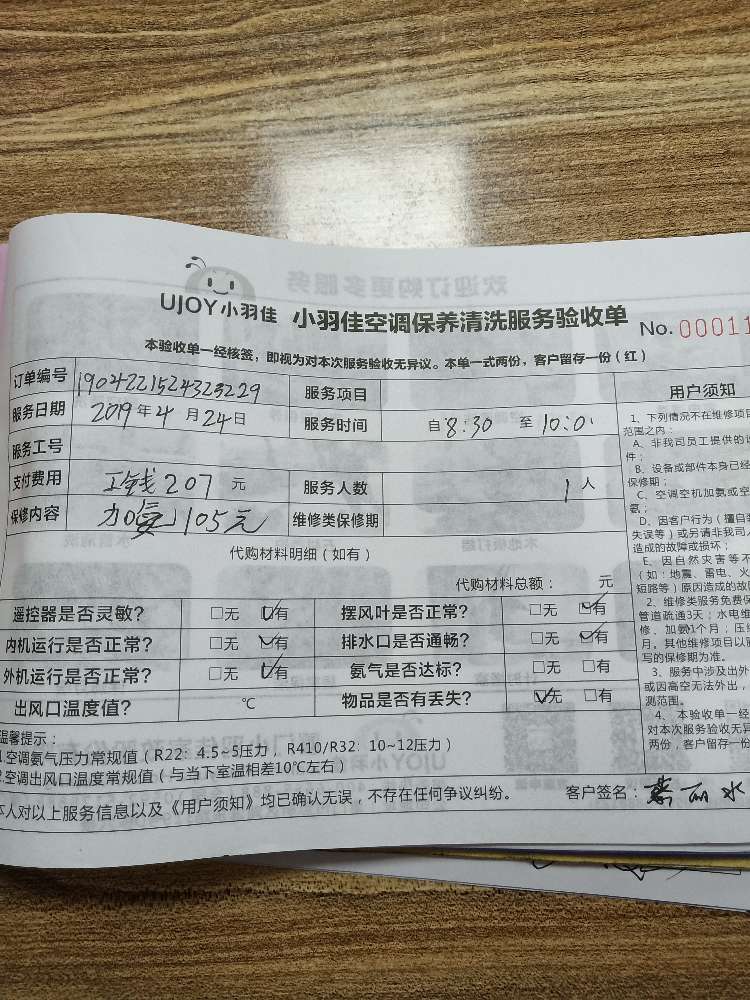 UJOY小羽佳 小羽佳空调保养清洗服务验收单 No. 00011
本验收单一经核签，即视为对本次服务验收无异议。本单一式两份，客户留存一份（红）
订单编号 1904221524323229 服务项目
服务日期 2019年4月24日 服务时间 自8:30 至10:0
服务工号
支付费用 工钱207 元 服务人数 1人
保修内容 加氨 105元 维修类保修期
代购材料明细（如有）
代购材料总额： 元
遥控器是否灵敏？ □无 ☑有 摆风叶是否正常？ □无 ☑有
内机运行是否正常？ □无 ☑有 排水口是否通畅？ □无 ☑有
外机运行是否正常？ □无 ☑有 氨气是否达标？ □无 □有
出风口温度值？ ℃ 物品是否有丢失？ ☑无 □有
温馨提示：
1.空调氨气压力常规值（R22：4.5~5压力，R410/R32：10~12压力）
2.空调出风口温度常规值（与当下室温相差10℃左右）
本人对以上服务信息以及《用户须知》均已确认无误，不存在任何争议纠纷。 客户签名： 丽水
用户须知
1、下列情况不在维修项目
范围之内：
A、非我司员工提供的
件；
B、设备或部件本身已经
保修期；
C、空调空机加氨或空
氨；
D、因客户行为（擅自
失误等）或另请非我司人
造成的故障或损坏；
E、因自然灾害等不
（如：地震、雷电、火
短路等）原因造成的故
2、维修类服务免费保
管道疏通3天；水电维
修、加氨1个月；压
月，其他维修项目以
写的保修期为准。
3、服务中涉及出外
或因高空无法外出，
测范围。
4、本验收单一经
对本次服务验收无异
两份，客户留存一份